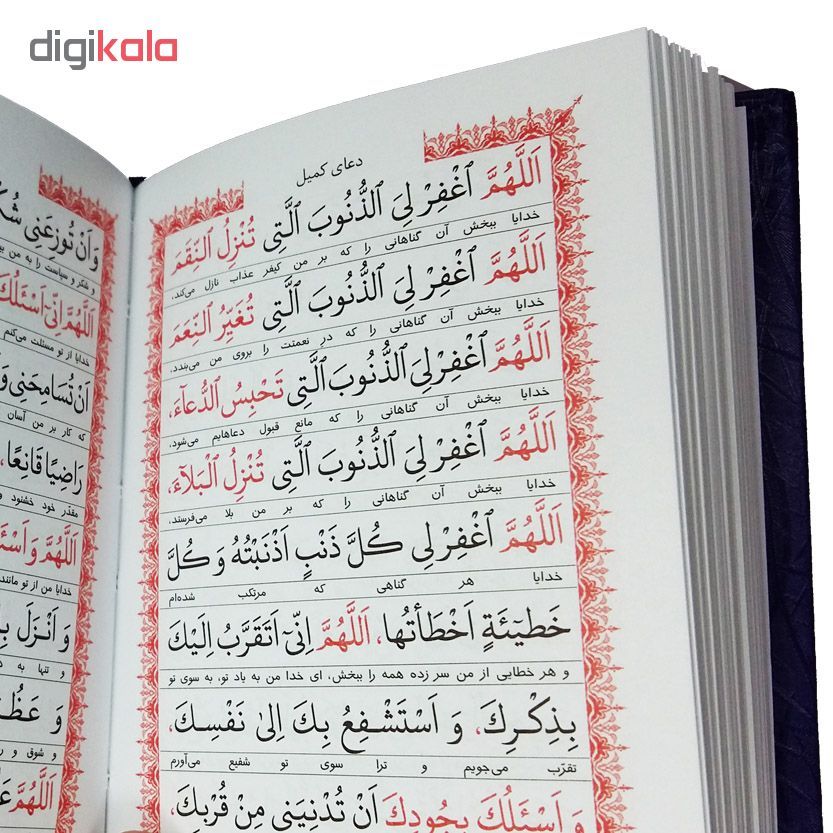 digikala
دعای کمیل
اَللّٰهُمَّ اغْفِرْ لِیَ الذُّنُوبَ الَّتِی تُنْزِلُ النِّقَمَ
خدایا ببخش آن گناهانی را که بر من کیفر عذاب نازل می‌کند،
اَللّٰهُمَّ اغْفِرْ لِیَ الذُّنُوبَ الَّتِی تُغَیِّرُ النِّعَمَ
خدایا ببخش آن گناهانی را که در نعمتت را بروی من می‌بندد.
اَللّٰهُمَّ اغْفِرْ لِیَ الذُّنُوبَ الَّتِی تَحْبِسُ الدُّعآءَ،
خدایا ببخش آن گناهانی را که مانع قبول دعاهایم می‌شود.
اَللّٰهُمَّ اغْفِرْ لِیَ الذُّنُوبَ الَّتِی تُنْزِلُ الْبَلآءَ،
خدایا ببخش آن گناهانی را که بر من بلا می‌فرستد،
اَللّٰهُمَّ اغْفِرْ لِی کُلَّ ذَنْبٍ اَذْنَبْتُهُ وَ کُلَّ
خدایا هر گناهی که مرتکب شده‌ام
خَطٓیئَةٍ اَخْطَأتُها، اَللّٰهُمَّ اِنّیٓ اَتَقَرَّبُ اِلَیْكَ
و هر خطایی از من سر زده همه را ببخش، ای خدا من به یاد تو، به سوی تو
بِذِکْرِكَ، وَ اَسْتَشْفِعُ بِكَ اِلیٰ نَفْسِكَ،
تقرّب می‌جویم و ترا سوی تو شفیع می‌آورم
وَ اَسْئَلُكَ بِجُودِكَ اَنْ تُدْنِیَنی مِنْ قُرْبِكَ،
وَ اَنْ تُوزِعَنی
و شکر و سپاست را به من
اَللّٰهُمَّ اِنّیٓ اَسْئَلُكَ
خدایا از تو مسئلت می‌کنم
اَنْ تُسامِحَنی وَ
که کار بر من آسان
راضِیًا قانِعًا،
مقدّر خود خشنود و
اَللّٰهُمَّ وَ
خدایا من از تو مانند
وَ اَنْزَلَ
و تنها به
وَ عَظُمَ
و شوق و
اَللّٰهُمَّ